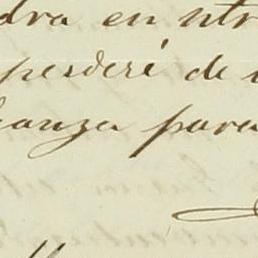 dra en ntr
perderé de
anza para